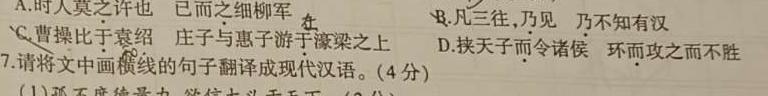 A.时人莫之许也 已而之细柳军
B.凡三往,乃见 乃不知有汉
在
C.曹操比于袁绍 庄子与惠子游于濠梁之上
D.挟天子而令诸侯 环而攻之而不胜
7.请将文中画横线的句子翻译成现代汉语。(4分)
(1)孤不度德量力,欲信大义于天下。(2分)